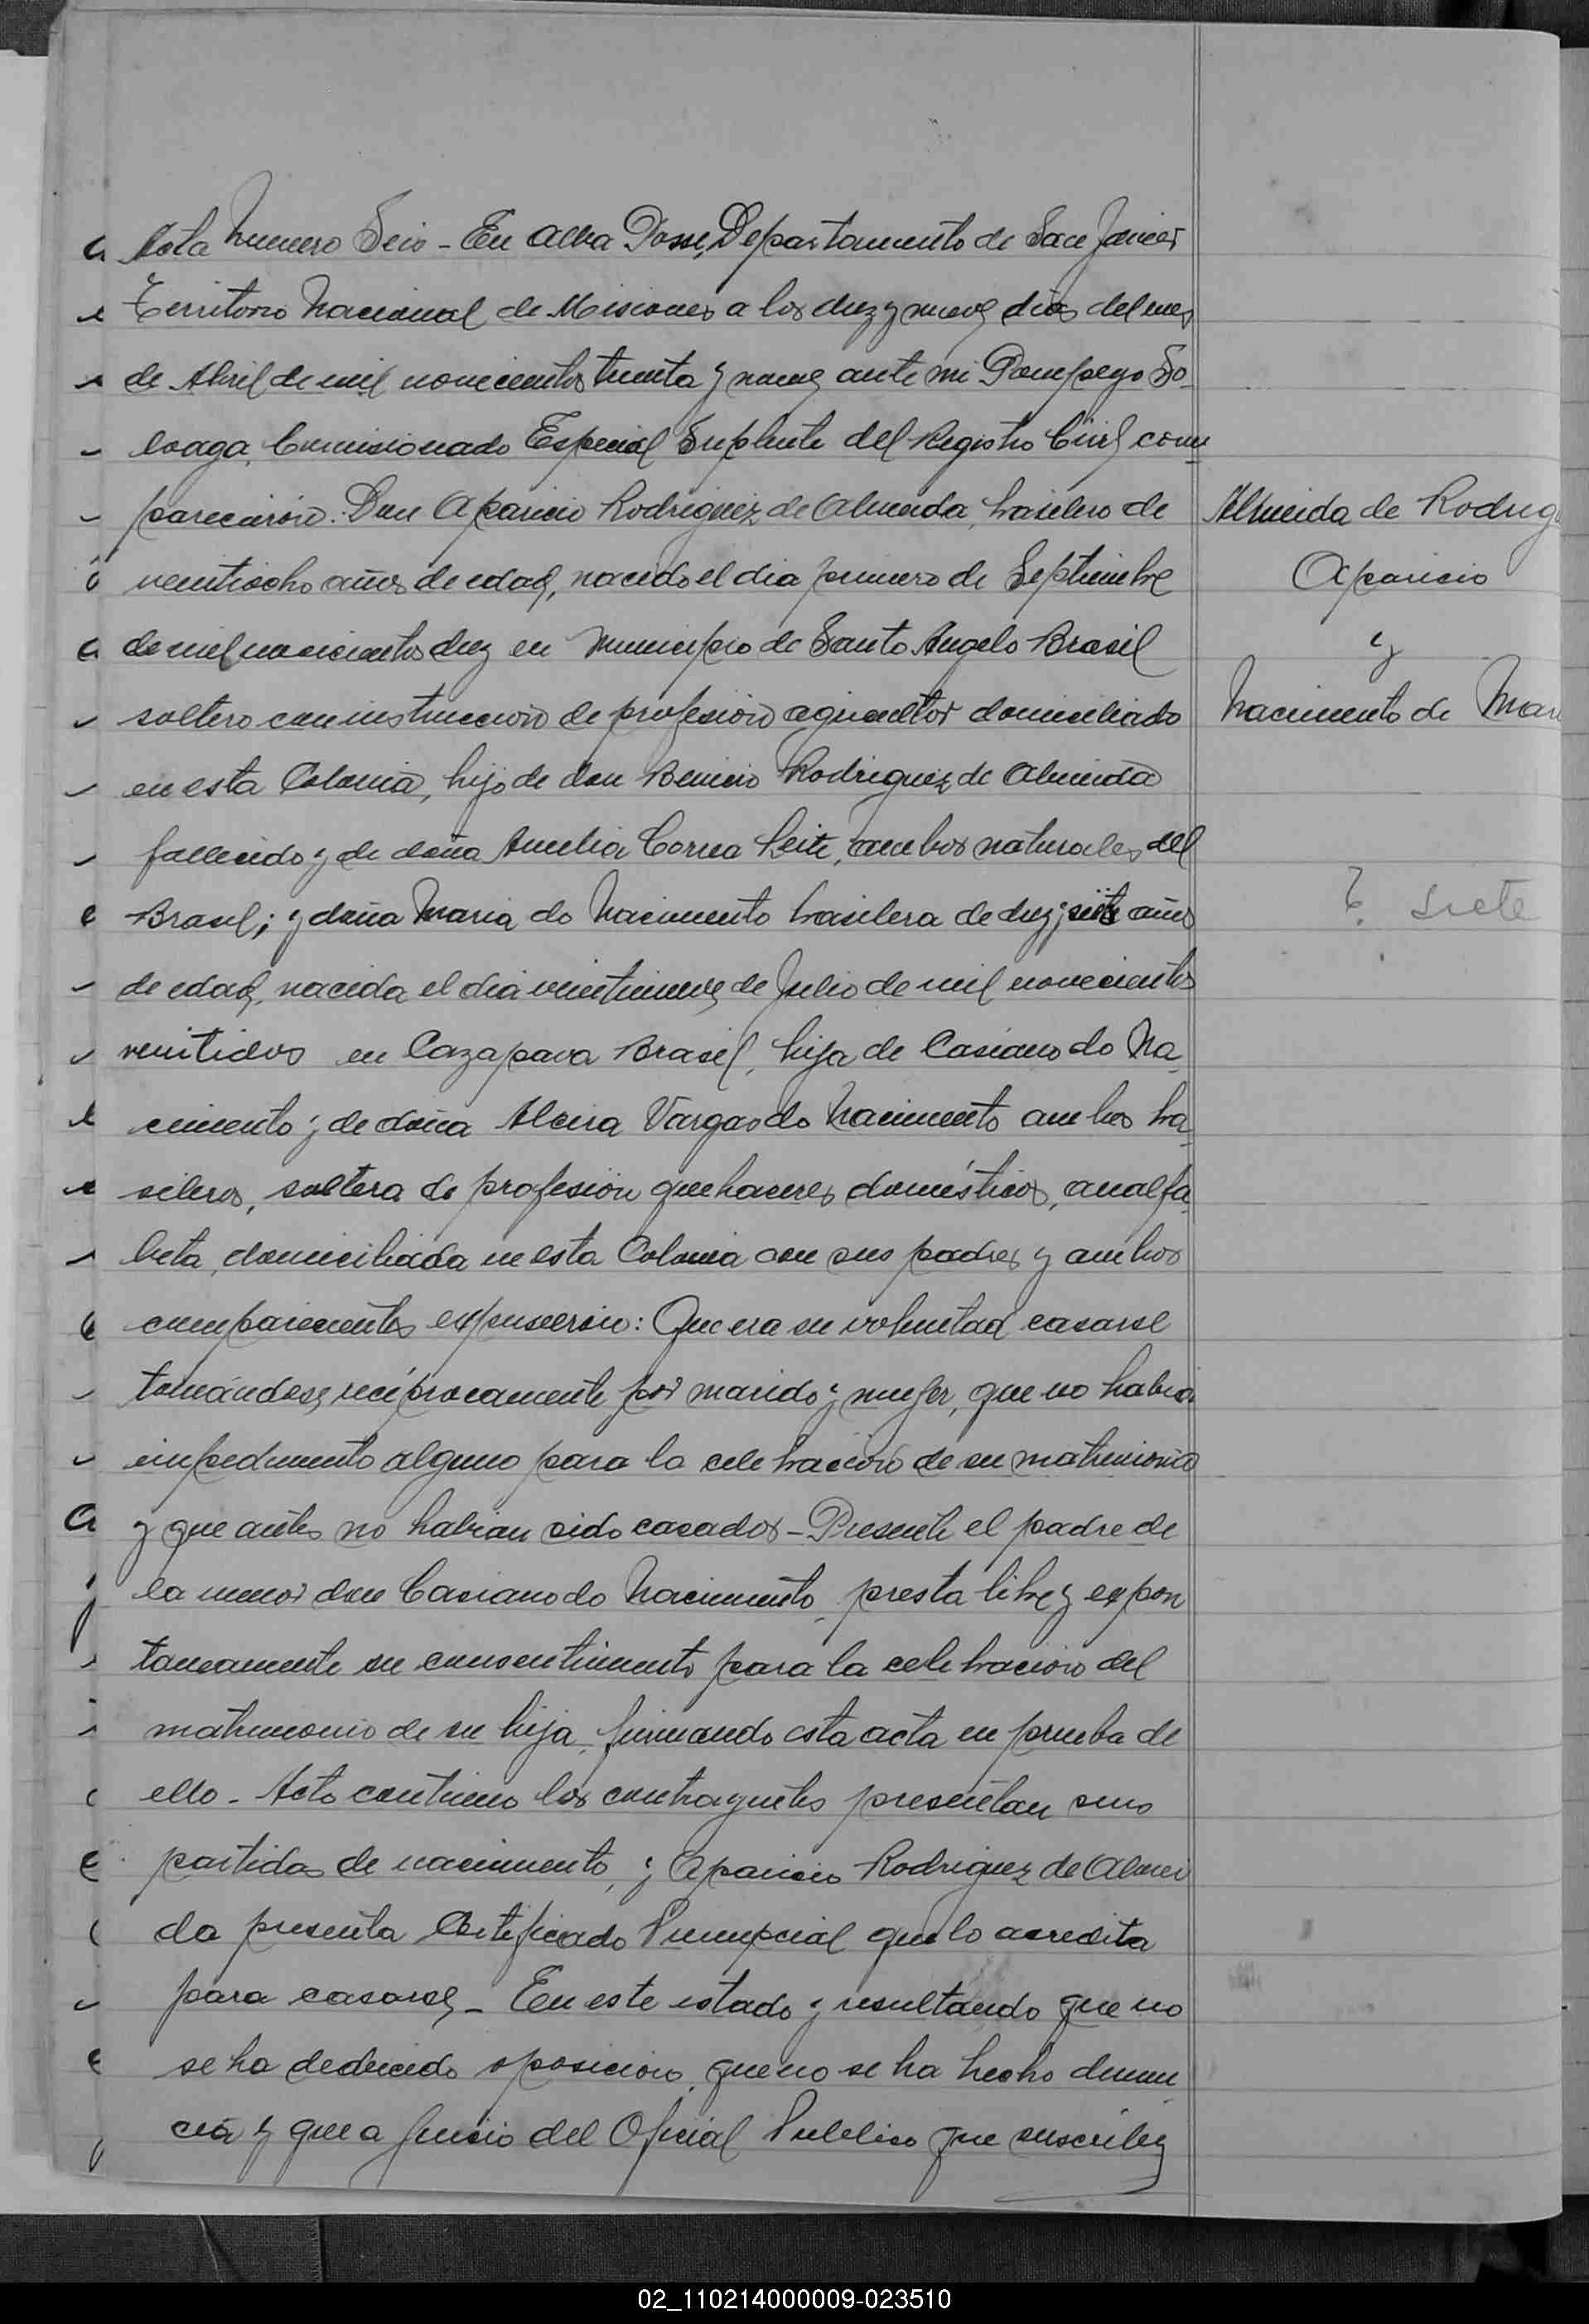 Acta Numero Seis - En Alba Posse, Departamento de San Javier
Territorio Nacional de Misiones a los diez y nueve dias del mes
de Abril de mil novecientos treinta y nueve ante mi Pompeyo So-
loaga, Comisionado Especial Suplente del Registro Civil com-
parecieron: Don Aparicio Rodriguez de Almeida, brasilero de
veintiocho años de edad, nacido el dia primero de Septiembre
de mil novecientos diez en Municipio de Santo Angelo Brasil
soltero con instruccion de profesión agricultor domiciliado
en esta Colonia, hijo de don Benicio Rodriguez de Almeida
fallecido y de doña Amelia Correa Leite, ambos naturales del
Brasil; y doña Maria do Nacimento brasilera de diez y siete años
de edad, nacida el dia veintinueve de Julio de mil novecientos
veintidos en Cazapava Brasil, hija de Casiano do Na-
cimento y de doña Alcira Vargas do Nacimento ambos bra-
sileros, soltera de profesión quehaceres domésticos, analfa-
beta, domiciliada en esta Colonia con sus padres y ambos
comparecientes expusieron: Que era su voluntad casarse
tomándose recíprocamente por marido y mujer, que no habia
impedimento alguno para la celebración de su matrimonio
y que antes no habian sido casados - Presente el padre de
la menor don Casiano do Nacimento, presta libre y expon
taneamente su consentimiento para la celebracion del
matrimonio de su hija, firmando esta acta en prueba de
ello - Acto continuo los contrayentes presentan sus
partidas de nacimiento, y Aparicio Rodriguez de Almei
da presenta Certificado que lo acredita
para casarse - En este estado y resultando que no
se ha deducido oposicion, que no se ha hecho denun-
cia y que a juicio del Oficial Publico que suscribe
Almeida de Rodrig
Aparicio
y
Nacimento de Mar
? siete
02_110214000009-023510